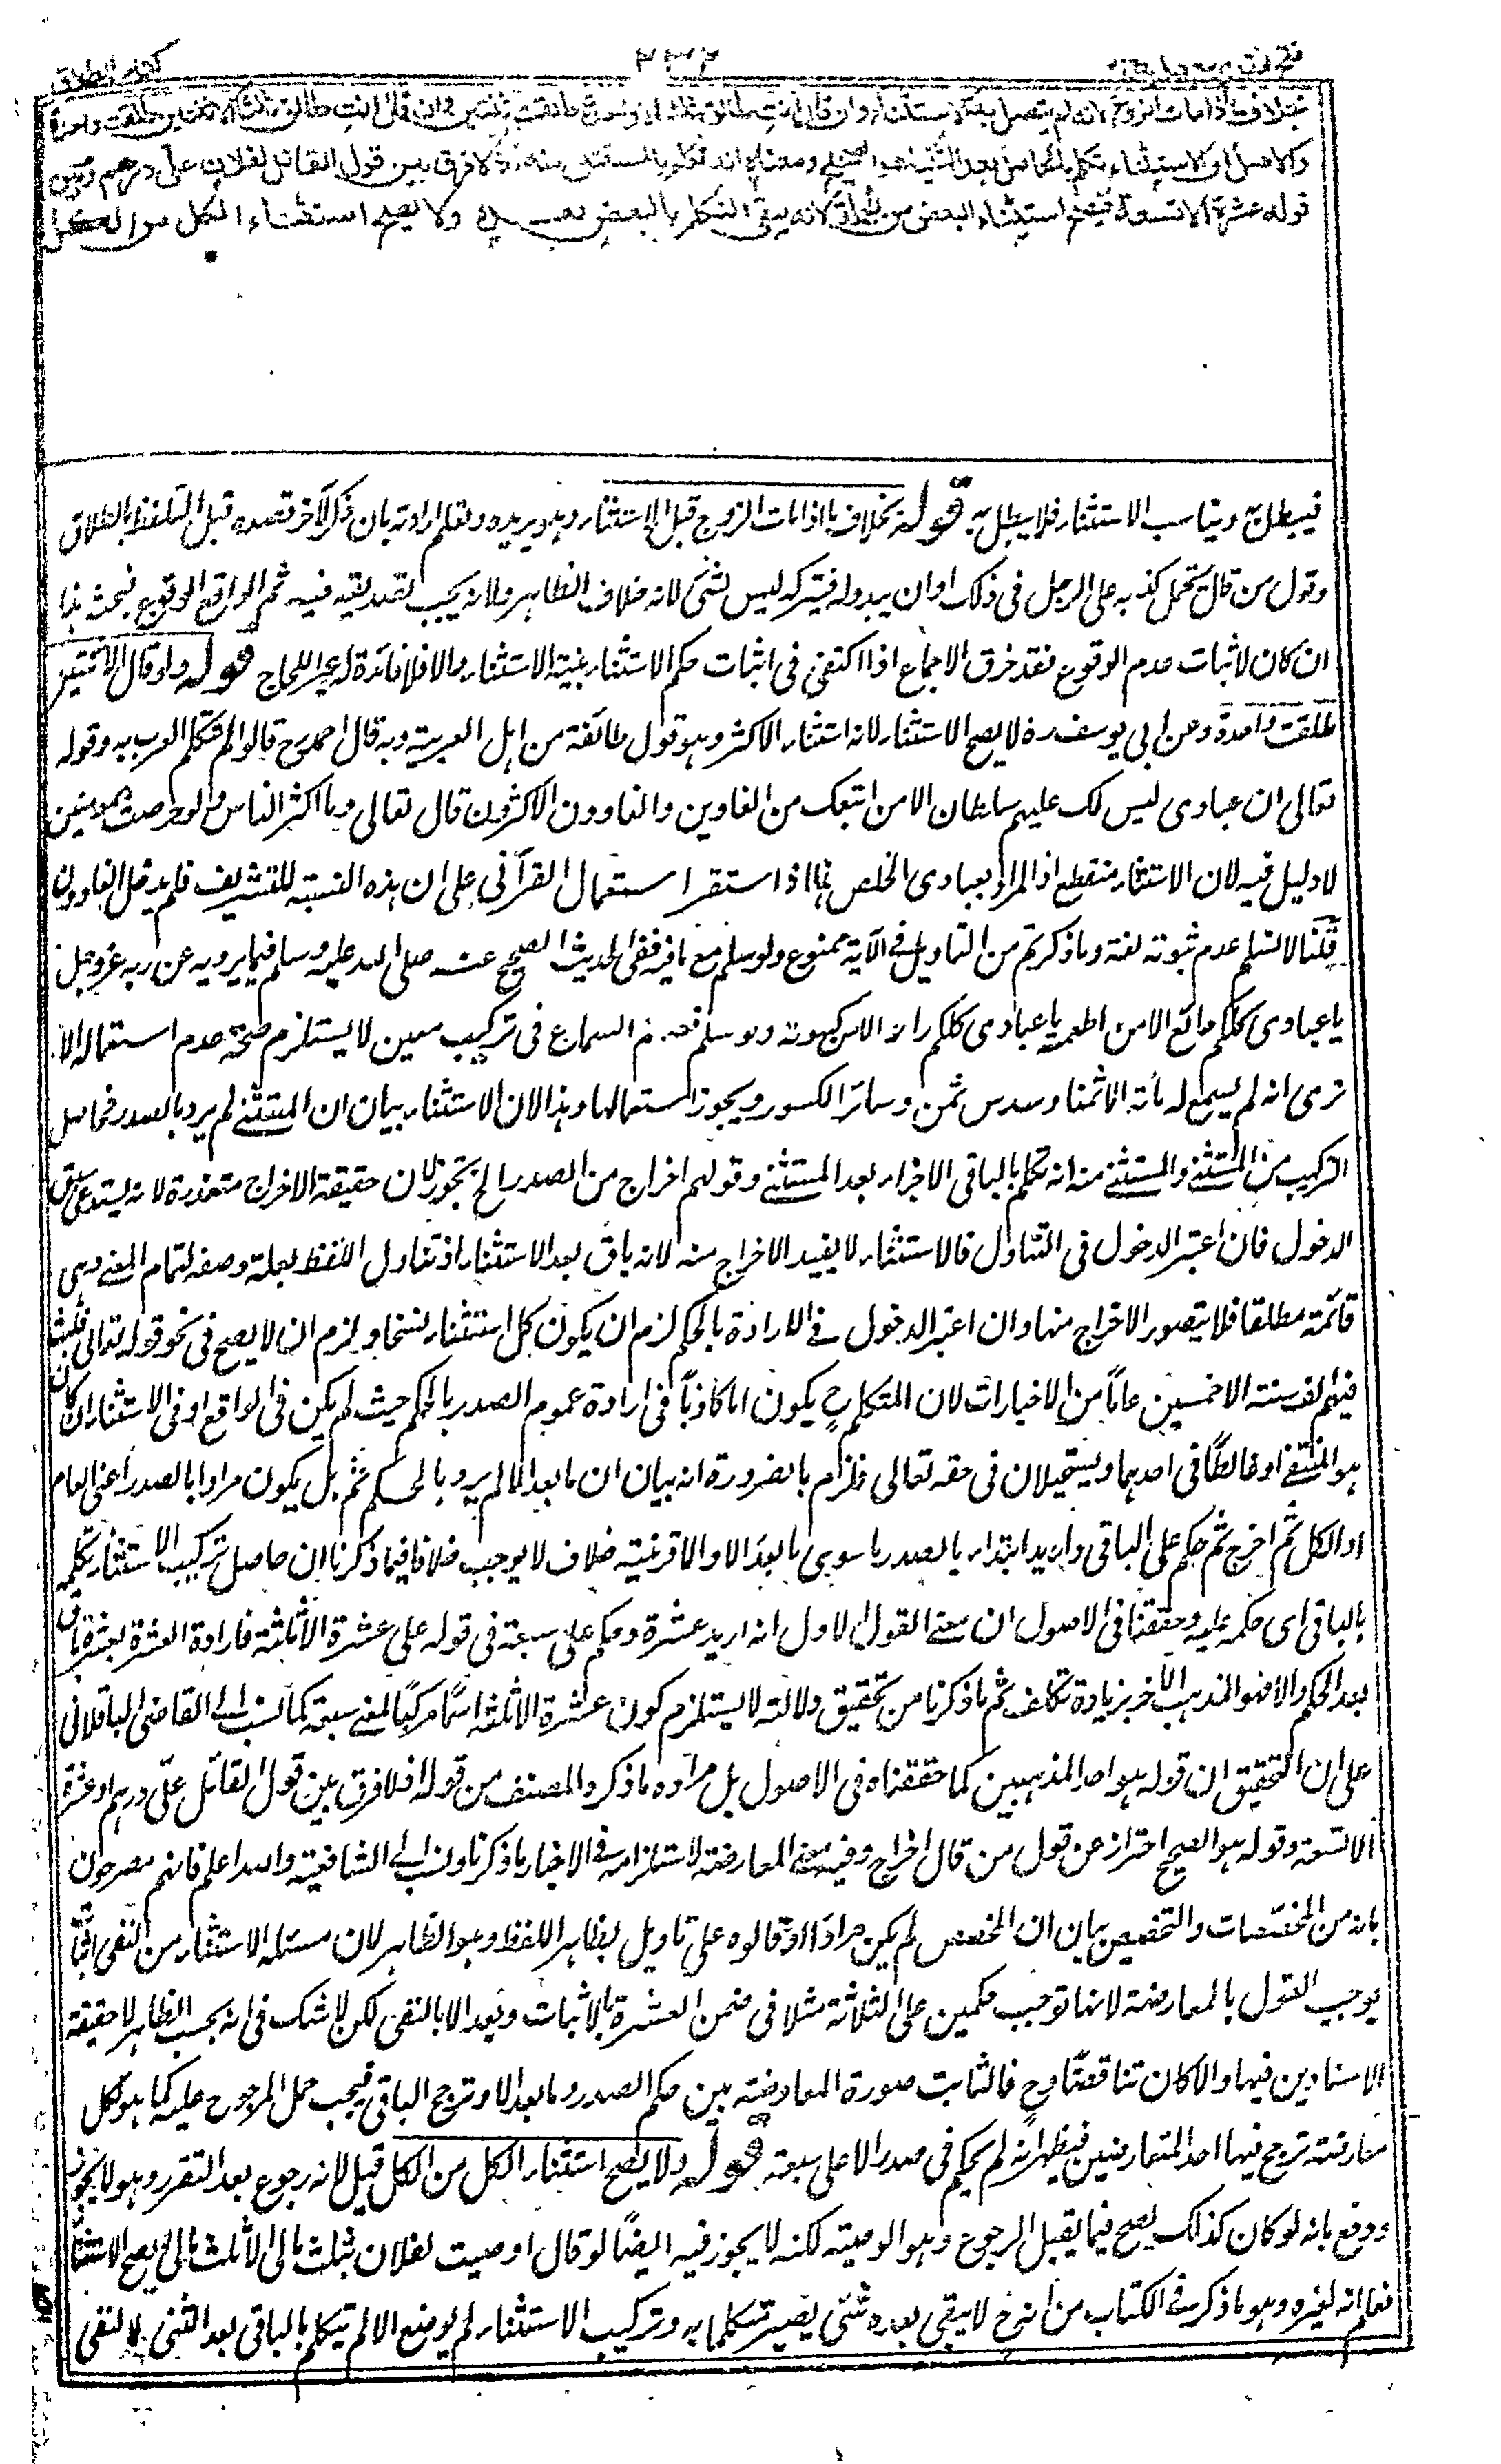 كتاب الطلاق
٢٣٢
بخلاف ما اذا مات الزوج لانه لم يتصل به الاستثناء وان قال انت طالق ثلثا الا واحدة طلقت ثنتين وان قال انت طالق ثلثا الا ثنتين طلقت واحدة
والاصل ان الاستثناء تكلم بالحاصل بعد الثنيا هو الصحيح ومعناه انه تكلم بالمستثنى منه اذ لا فرق بين قول القائل لفلان علي درهم وبين
قوله عشرة الا تسعة فيصح استثناء البعض من الجملة لانه يبقى التكلم بالبعض بعده ولا يصح استثناء الكل من الكل
فيبطل به ويناسب الاستثناء فلا يبطل به قوله بخلاف ما اذا مات الزوج قبل الاستثناء وهو يريده وتعلم ارادته بان ذكر لآخر قصده قبل التلفظ بالطلاق
وقول من قال يحمل كذبه على الرجل فى ذلك او ان يبدو له فيتركه ليس بشئ لانه خلاف الظاهر ولانه يجب تصديقه فيه ثم الواقع الوقوع فبحث هذا
ان كان لاثبات عدم الوقوع فقد خرق الاجماع اذا اكتفى فى اثبات حكم الاستثناء بنية الاستثناء والا فلا فائدة له غير اللجاج قوله ولو قال الا ثنتين
طلقت واحدة وعن ابى يوسف رہ لا يصح الاستثناء لانه استثناء الاكثر وهو قول طائفة من اهل العربية وبه قال احمد رح قالوا لم تتكلم العرب به وقوله
تعالى ان عبادى ليس لك عليهم سلطان الا من اتبعك من الغاوين والغاوون الاكثرون قال تعالى وما اكثر الناس ولو حرصت بمومنين
لا دليل فيه لان الاستثناء منقطع اذ المراد بعبادى الخلص هنا اذ استقرا استعمال القرآنى على ان هذه النسبة للتشريف فلم يدخل الغاوون
قلنا لا نسلم عدم ثبوته لغة وما ذكرتم من التاويل فى الآية ممنوع ولو سلم مع ما فيه ففى الحديث الصحيح عنه صلى الله عليه وسلم فيما يرويه عن ربه عز وجل
يا عبادى كلكم جائع الا من اطعمته يا عبادى كلكم عار الا من كسوته ولو سلم فعدم السماع فى تركيب معين لا يستلزم صحة عدم استعماله الا
ترى انه لم يسمع له مأة الا ثمنا وسدس ثمن وسائر الكسور ويجوز استعمالها وهذا لان الاستثناء بيان ان المستثنى لم يرد بالصدر فحاصل
التركيب من المستثنى والمستثنى منه انه تكلم بالباقى الاجزاء بعد المستثنى وقولهم اخراج من الصدر الخ تجوز لان حقيقة الاخراج متعذرة لانه يستدعى سبق
الدخول فان اعتبر الدخول فى التناول فالاستثناء لا يفيد الاخراج منه لانه باق بعد الاستثناء اذ تناول اللفظ بعلة وضعه لتمام المعنى وهى
قائمة مطلقا فلا يتصور الاخراج منها وان اعتبر الدخول فى الارادة بالحكم لزم ان يكون كل استثناء نسخا ولزم ان لا يصح فى نحو قوله تعالى فلبث
فيهم الف سنة الا خمسين عاماً من الاخبارات لان المتكلم ح يكون اما كاذباً فى ارادة عموم الصدر بالحكم حيث لم يكن فى الواقع او فى الاستثناء ان كان
هو المنتفى او غالطاً فى احدهما ويستحيلان فى حقه تعالى فلزم بالضرورة انه بيان ان ما بعد الا لم يرد بالحكم ثم بل يكون مرادا بالصدر اعنى العام
او الكل ثم اخرج ثم حكم على الباقى واريد ابتداء بالصدر ما سوى ما بعد الا والا قرينته خلاف لا يوجب خلافا فيما ذكرنا ان حاصل تركيب الاستثناء تكلم
بالباقى اى حكم عليه وحققنا فى الاصول ان معنى القول الاول انه اريد عشرة وحكم على سبعة فى قوله على عشرة الا ثلثة فارادة العشرة بعشرة باق
بعد الحكم والا فهو المذهب الآخر بزيادة تكلف ثم ما ذكرنا من تحقيق دلالته لا يستلزم كون عشرة الا ثلثة اسماً مركباً لمعنى سبعة كما نسب الى القاضى الباقلانى
على ان التحقيق ان قوله هو احد المذهبين كما حققناه فى الاصول بل مراده ما ذكره المصنف من قوله فلا فرق بين قول القائل علىّ درهم او عشرة
الا تسعة وقوله هو الصحيح احتراز عن قول من قال اخراج وفيه معنى المعارضة لاستلزامه فى الاخبار ما ذكرنا ونسب الى الشافعية والله اعلم فانهم مصرحون
بانه من المخصصات والتخصيص بيان ان المخصص لم يكن مراداً او قالوه على تاويل بظاهر اللفظ وهو الظاهر لان مسئلة الاستثناء من النفى اثباتا
يوجب القول بالمعارضة لانها توجب حكمين على الثلاثة مثلا فى ضمن العشرة بالاثبات وبعد الا بالنفى لكن لا شك فى انه بحسب الظاهر لا حقيقة
الاسنادين فيها والا كان تناقضاً وح فالثابت صورة المعارضة بين حكم الصدر وما بعد الا وترجح الباقى فيجب حمل المرجوح عليه كما هو كل
معارضة ترجح فيها احد المتعارضين فيظهر انه لم يحكم فى صدر الا على سبعة قوله ولا يصح استثناء الكل من الكل قيل لانه رجوع بعد التقرر وهو لا يجوز
ودفع بانه لو كان كذلك يصح فيما يقبل الرجوع وهو الوصية لكنه لا يجوز فيه ايضاً لو قال اوصيت لفلان بثلث مالى الا ثلث مالى لا يصح الاستثنا
فعلم انه لغيره وهو ما ذكر فى الكتاب من انه ح لا يبقى بعده شئ يصير متكلما به وتركيب الاستثناء لم يوضع الا لم يتكلم بالباقى بعد الثنى لا لنفى